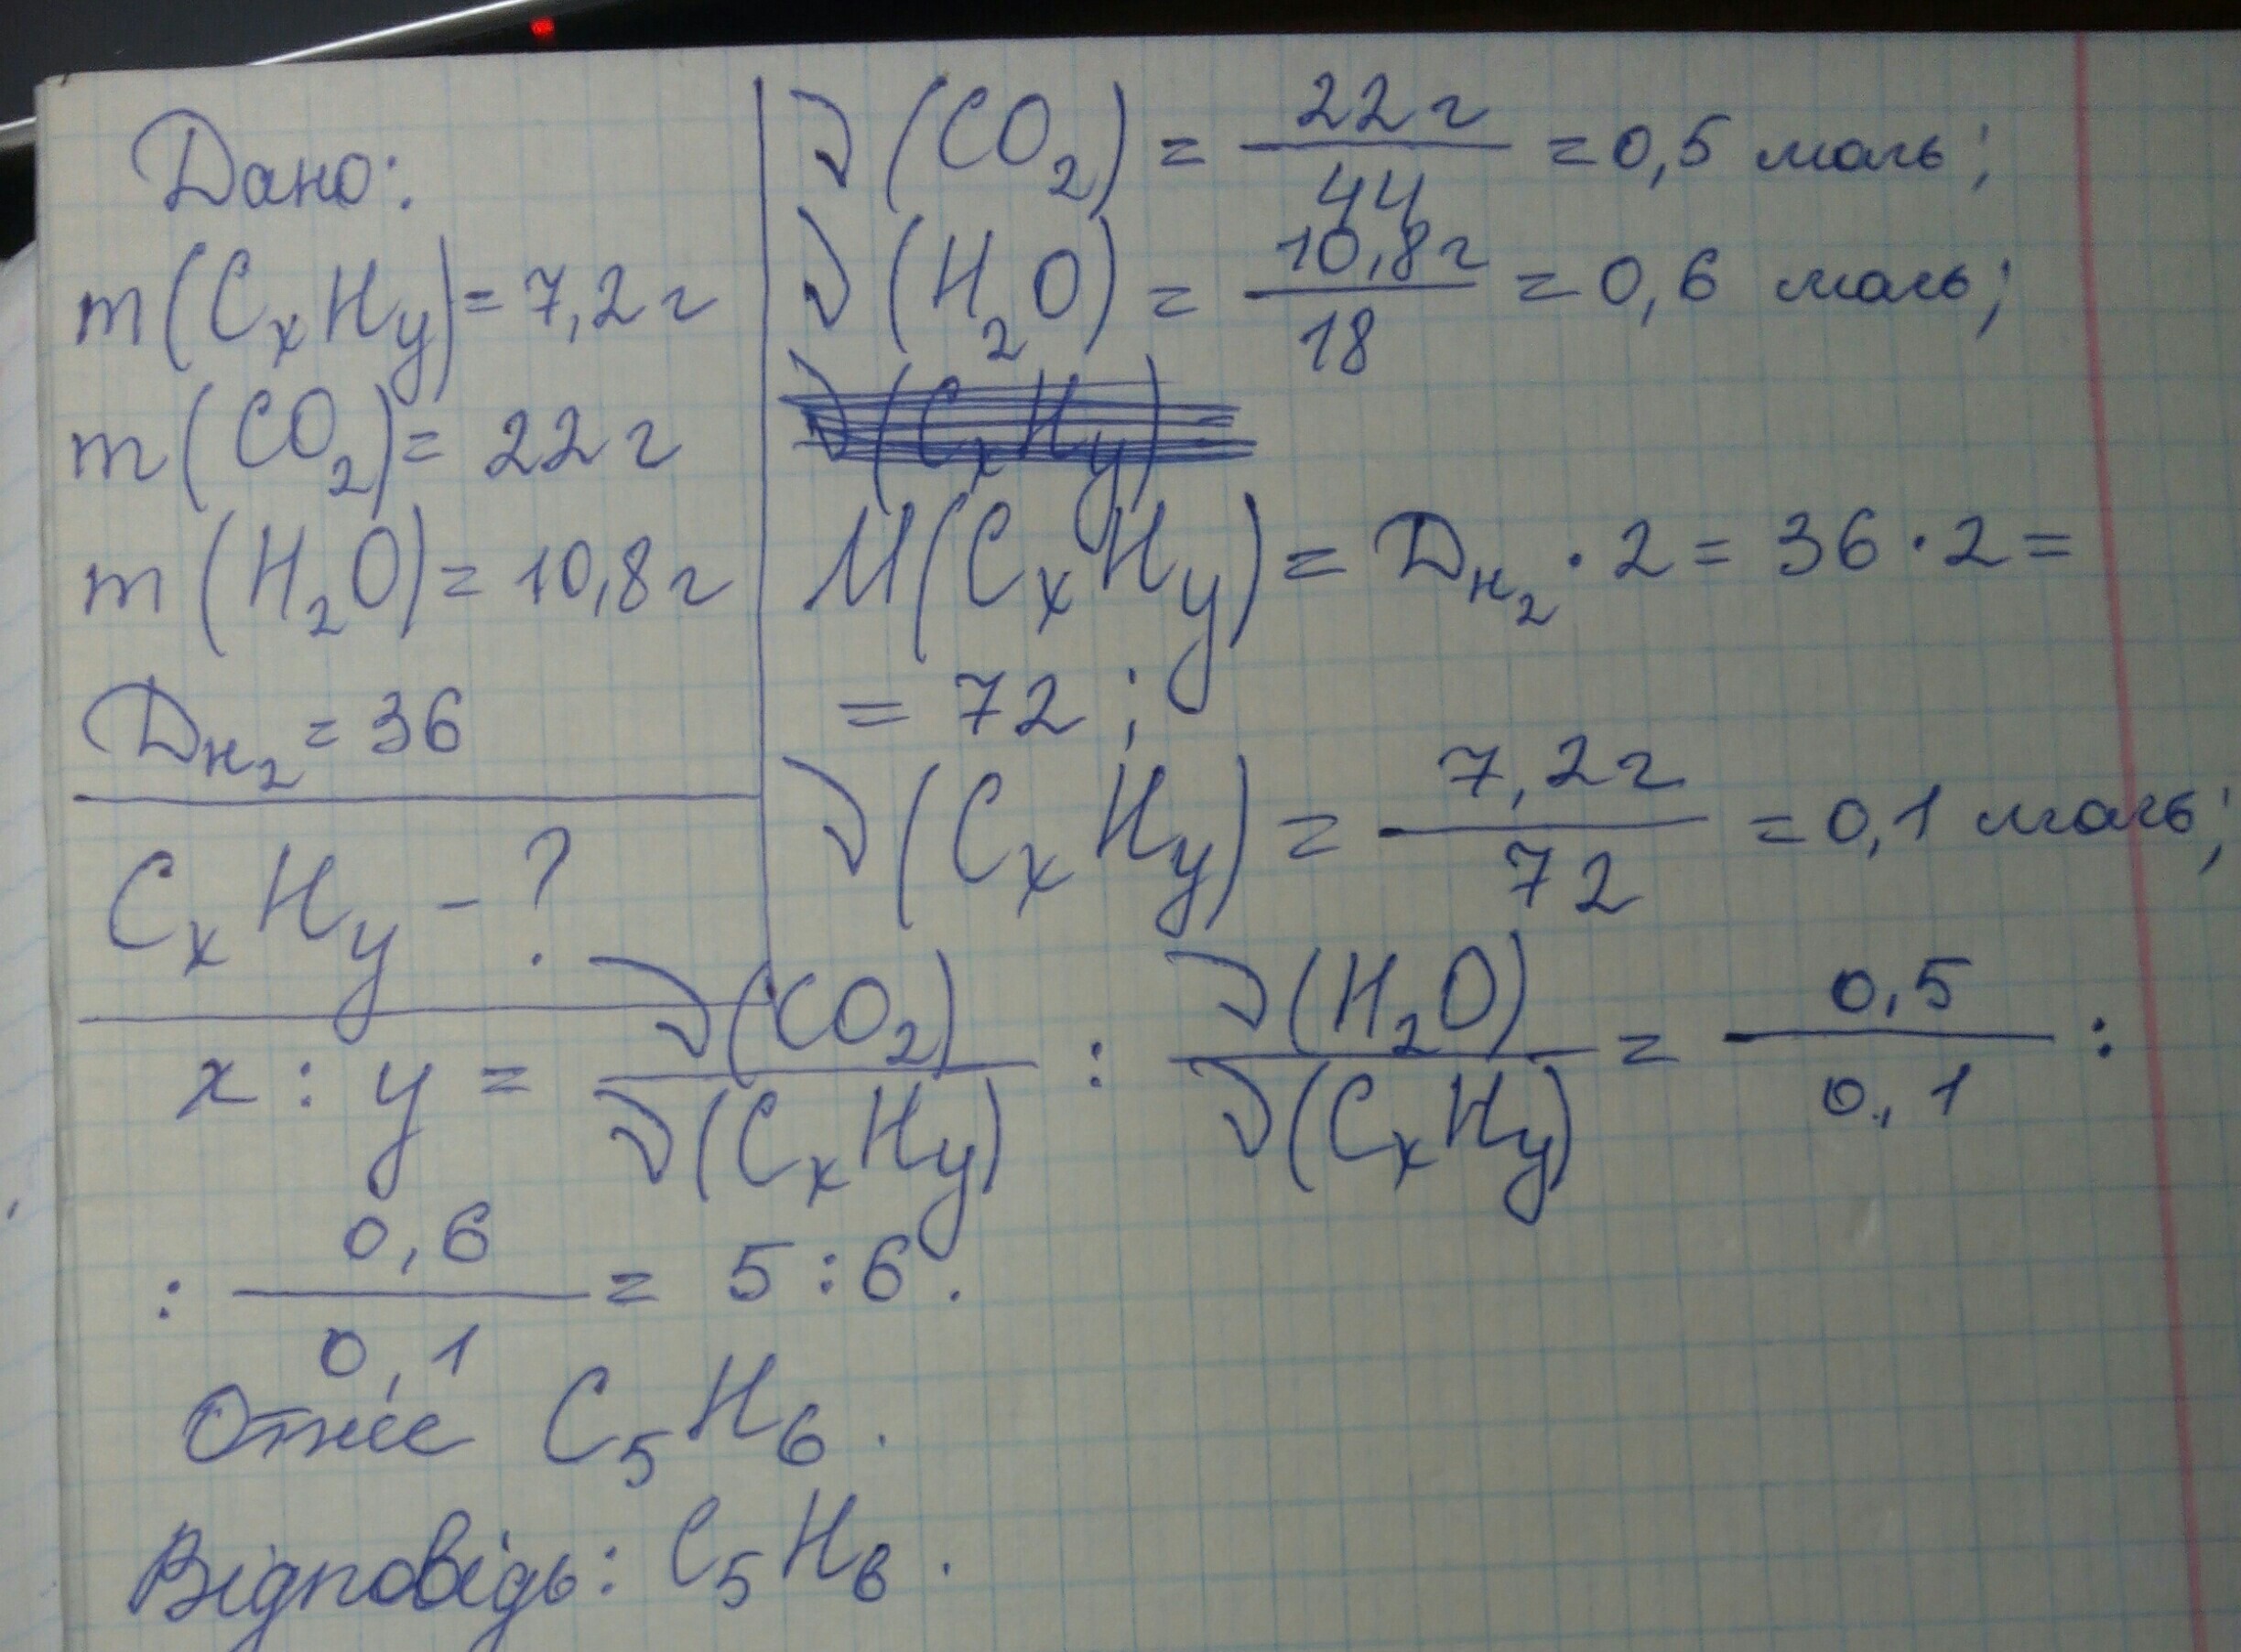 Дано:
m(CxHy)=7,2г
m(CO₂)=22г
m(H₂O)=10,8г
Dн₂=36
CxHy-?
ν(CO₂)=22г/44=0,5 моль;
ν(H₂O)=10,8г/18=0,6 моль;
ν(CxHy)=
M(CxHy)=Dн₂·2=36·2=
=72;
ν(CxHy)=7,2г/72=0,1 моль;
x:y=ν(CO₂)/ν(CxHy):ν(H₂O)/ν(CxHy)=0,5/0,1:
:0,6/0,1=5:6.
Отже C₅H₆.
Відповідь: C₅H₆.